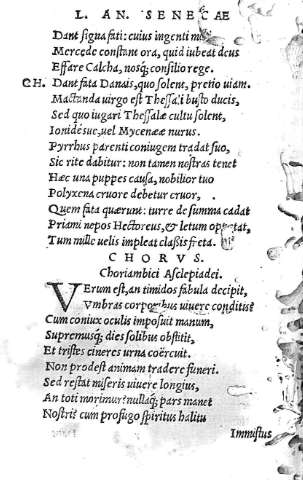 L. AN. SENECAE
Dant signa fati: cuius ingenti mo
Mercede constant ora, quid iubeat deus
Effare Calcha, nosq; consilio rege.
CH. Dant fata Danais, quo solent, pretio uiam.
Mactanda uirgo est Thessali busto ducis,
Sed quo iugari Thessalæ cultu solent,
Ionidesue, uel Mycenææ nurus.
Pyrrhus parenti coniugem tradat suo,
Sic rite dabitur: non tamen nostras tenet
Hæc una puppes causa, nobilior tuo
Polyxena cruore debetur cruor,
Quem fata quærunt: turre de summa cadat
Priami nepos Hectoreus, & letum oppetat,
Tum mille uelis impleat classis freta.
CHORVS.
Choriambici Asclepiadei.
VErum est, an timidos fabula decipit,
Vmbras corporibus uiuere conditis?
Cum coniux oculis imposuit manum,
Supremusq; dies solibus obstitit,
Et tristes cineres urna coërcuit.
Non prodest animam tradere funeri.
Sed restat miseris uiuere longius,
An toti morimur? nullaq; pars manet
Nostri? cum profugo spiritus halitu
Immistus